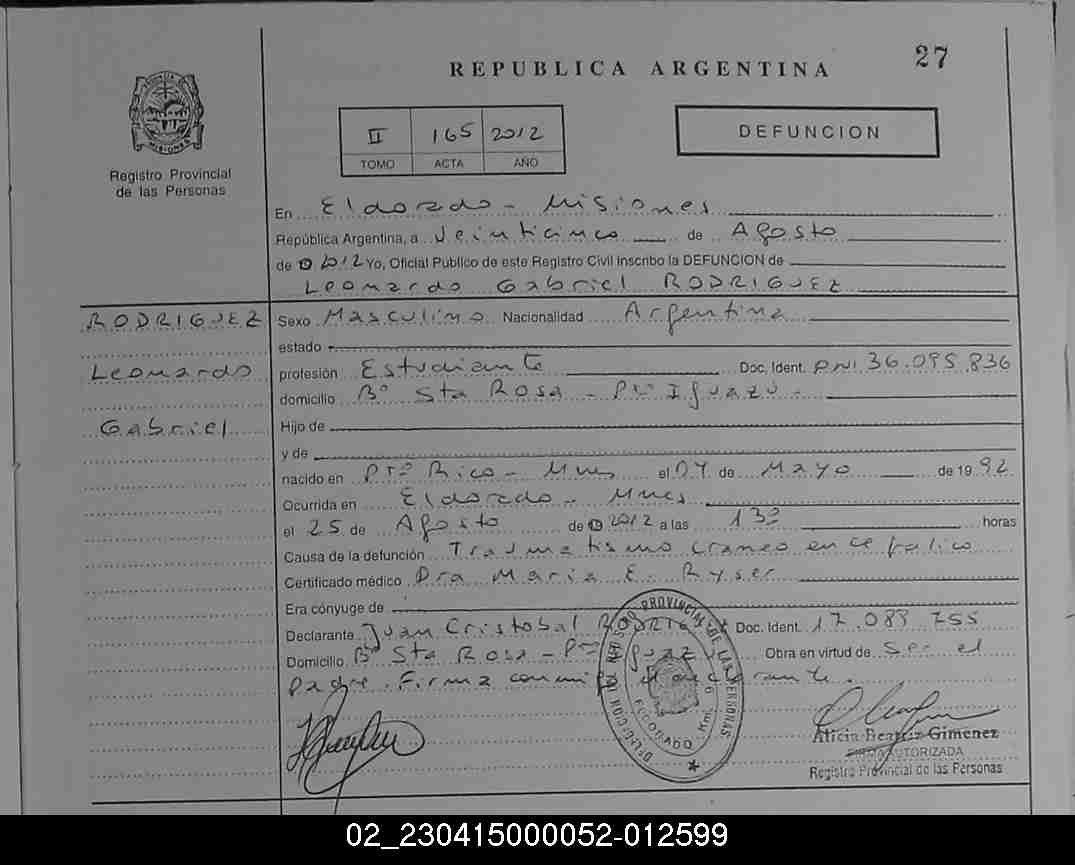 27
REPUBLICA ARGENTINA
II 165 2012
TOMO ACTA AÑO
DEFUNCION
MISIONES
Registro Provincial
de las Personas
En Eldorado - Misiones
República Argentina, a Veinticinco de Agosto
de 2012 Yo, Oficial Público de este Registro Civil inscribo la DEFUNCION de
Leonardo Gabriel RODRIGUEZ
RODRIGUEZ
Leonardo
Gabriel
Sexo Masculino Nacionalidad Argentina
estado
profesión Estudiante Doc. Ident. DNI 36.095.836
domicilio Bº Sta Rosa - Pto Iguazú -
Hijo de
y de
nacido en Pto Rico - Mnes el 04 de Mayo de 1992
Ocurrida en Eldorado - Mnes
el 25 de Agosto de 2012 a las 13 horas
Causa de la defunción Traumatismo craneo encefalico
Certificado médico Dra Maria E. Ryser
Era cónyuge de
Declarante Juan Cristobal RODRIG Doc. Ident. 17.089.755
Domicilio Bº Sta Rosa - Pto Iguazú Obra en virtud de Ser el
Padre. Firma conmigo el declarante.
DELEGACION REGISTRO PROVINCIAL DE LAS PERSONAS
ELDORADO Km.
Alicia Beatriz Gimenez
FIRMA AUTORIZADA
Registro Provincial de las Personas
02_230415000052-012599